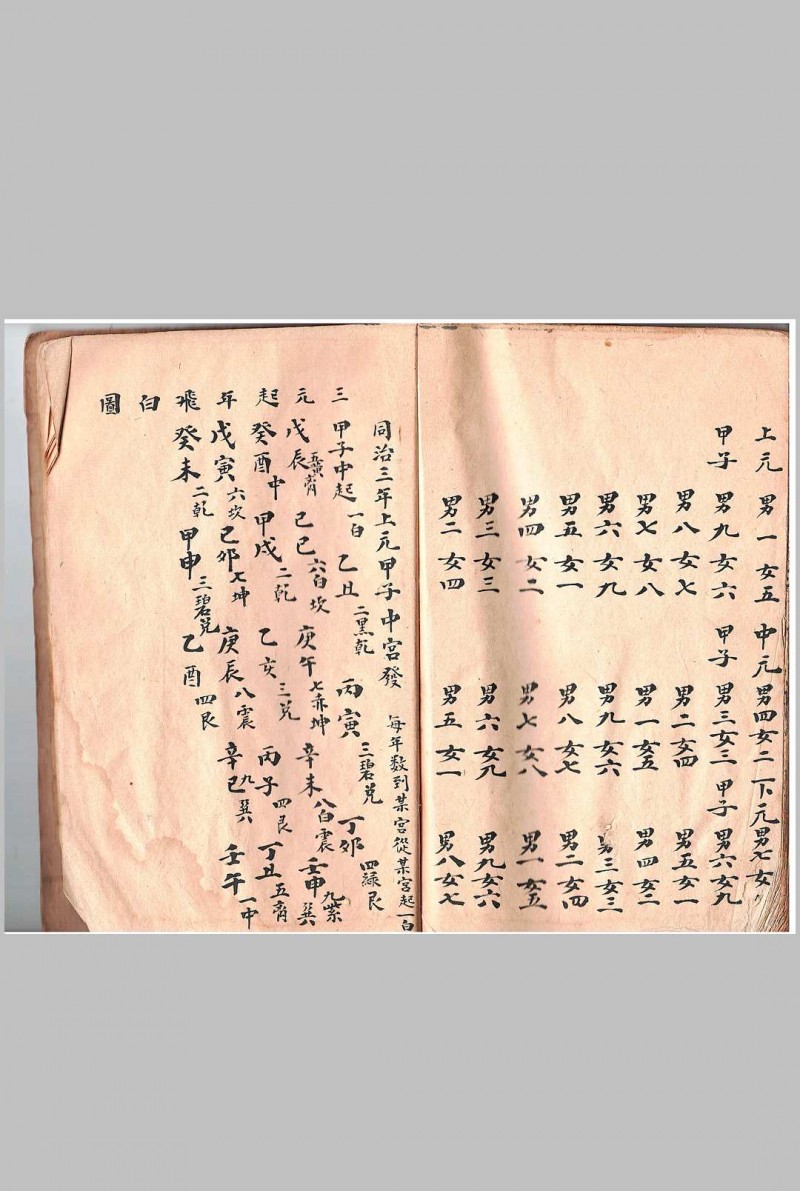 上元 男一女五 中元 男四女二 下元 男七女
甲子 男九女六 甲子 男三女三 甲子 男六女九
男八女七 男二女四 男五女一
男七女八 男一女五 男四女二
男六女九 男九女六 男三女三
男五女一 男八女七 男二女四
男四女二 男七女八 男一女五
男三女三 男六女九 男九女六
男二女四 男五女一 男八女七
三元起年飛白圖
同治三年上元甲子中宮發 每年数到某宮從某宮起一白
甲子中起一白 乙丑二黑乾 丙寅三碧兌 丁卯四綠艮
戊辰五黃离 己巳六白坎 庚午七赤坤 辛未八白震 壬申九紫巽
癸酉中 甲戌二乾 乙亥三兌 丙子四艮 丁丑五离
戊寅六坎 己卯七坤 庚辰八震 辛巳九巽 壬午一中
癸未二乾 甲申三碧兌 乙酉四艮